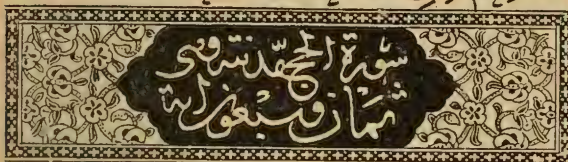 سورة الحج مدنية وهى
ثمان وسبعون اية